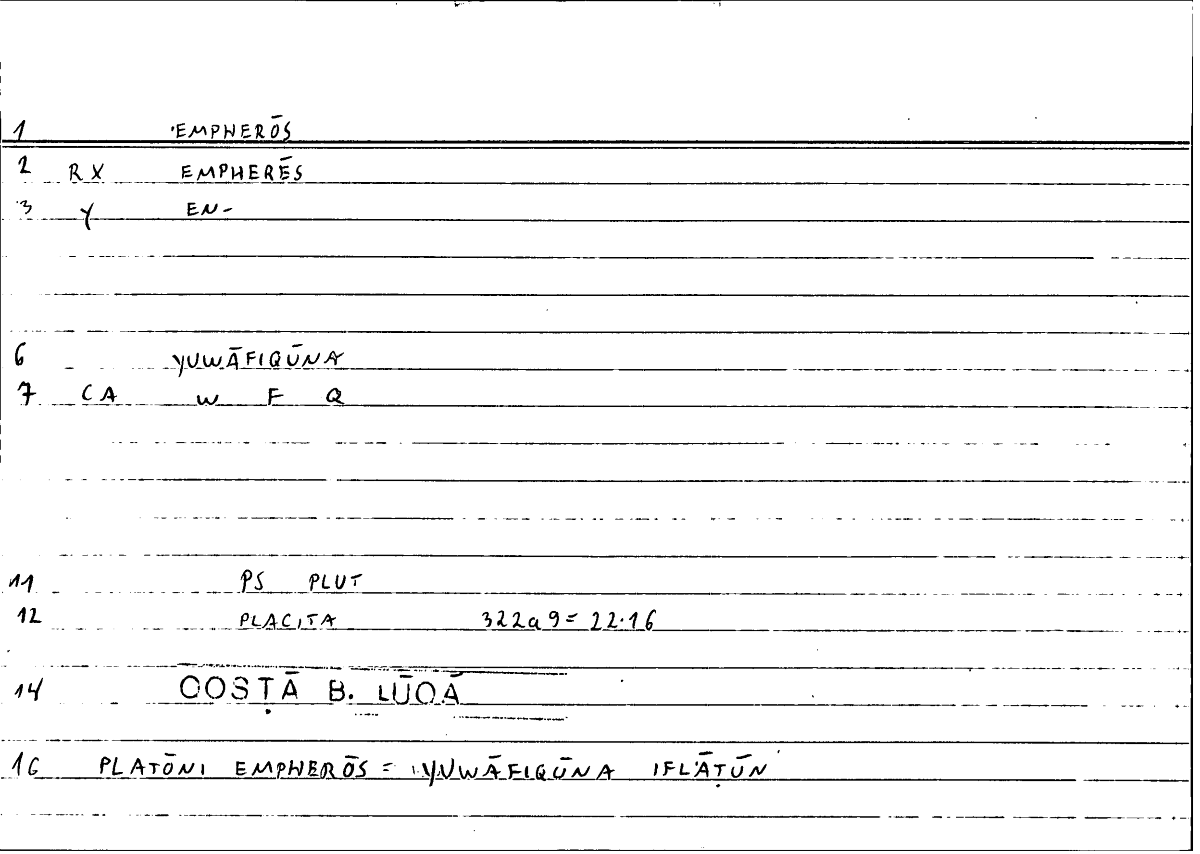 1 EMPHERŌS
2 RX EMPHERĒS
3 Y EN-
6 YUWĀFIQŪNA
7 CA W F Q
11 PS PLUT
12 PLACITA 322a9 = 22.16
14 QOSṬĀ B. LŪQĀ
16 PLATŌNI EMPHERŌS = YUWĀFIQŪNA IFLĀṬŪN